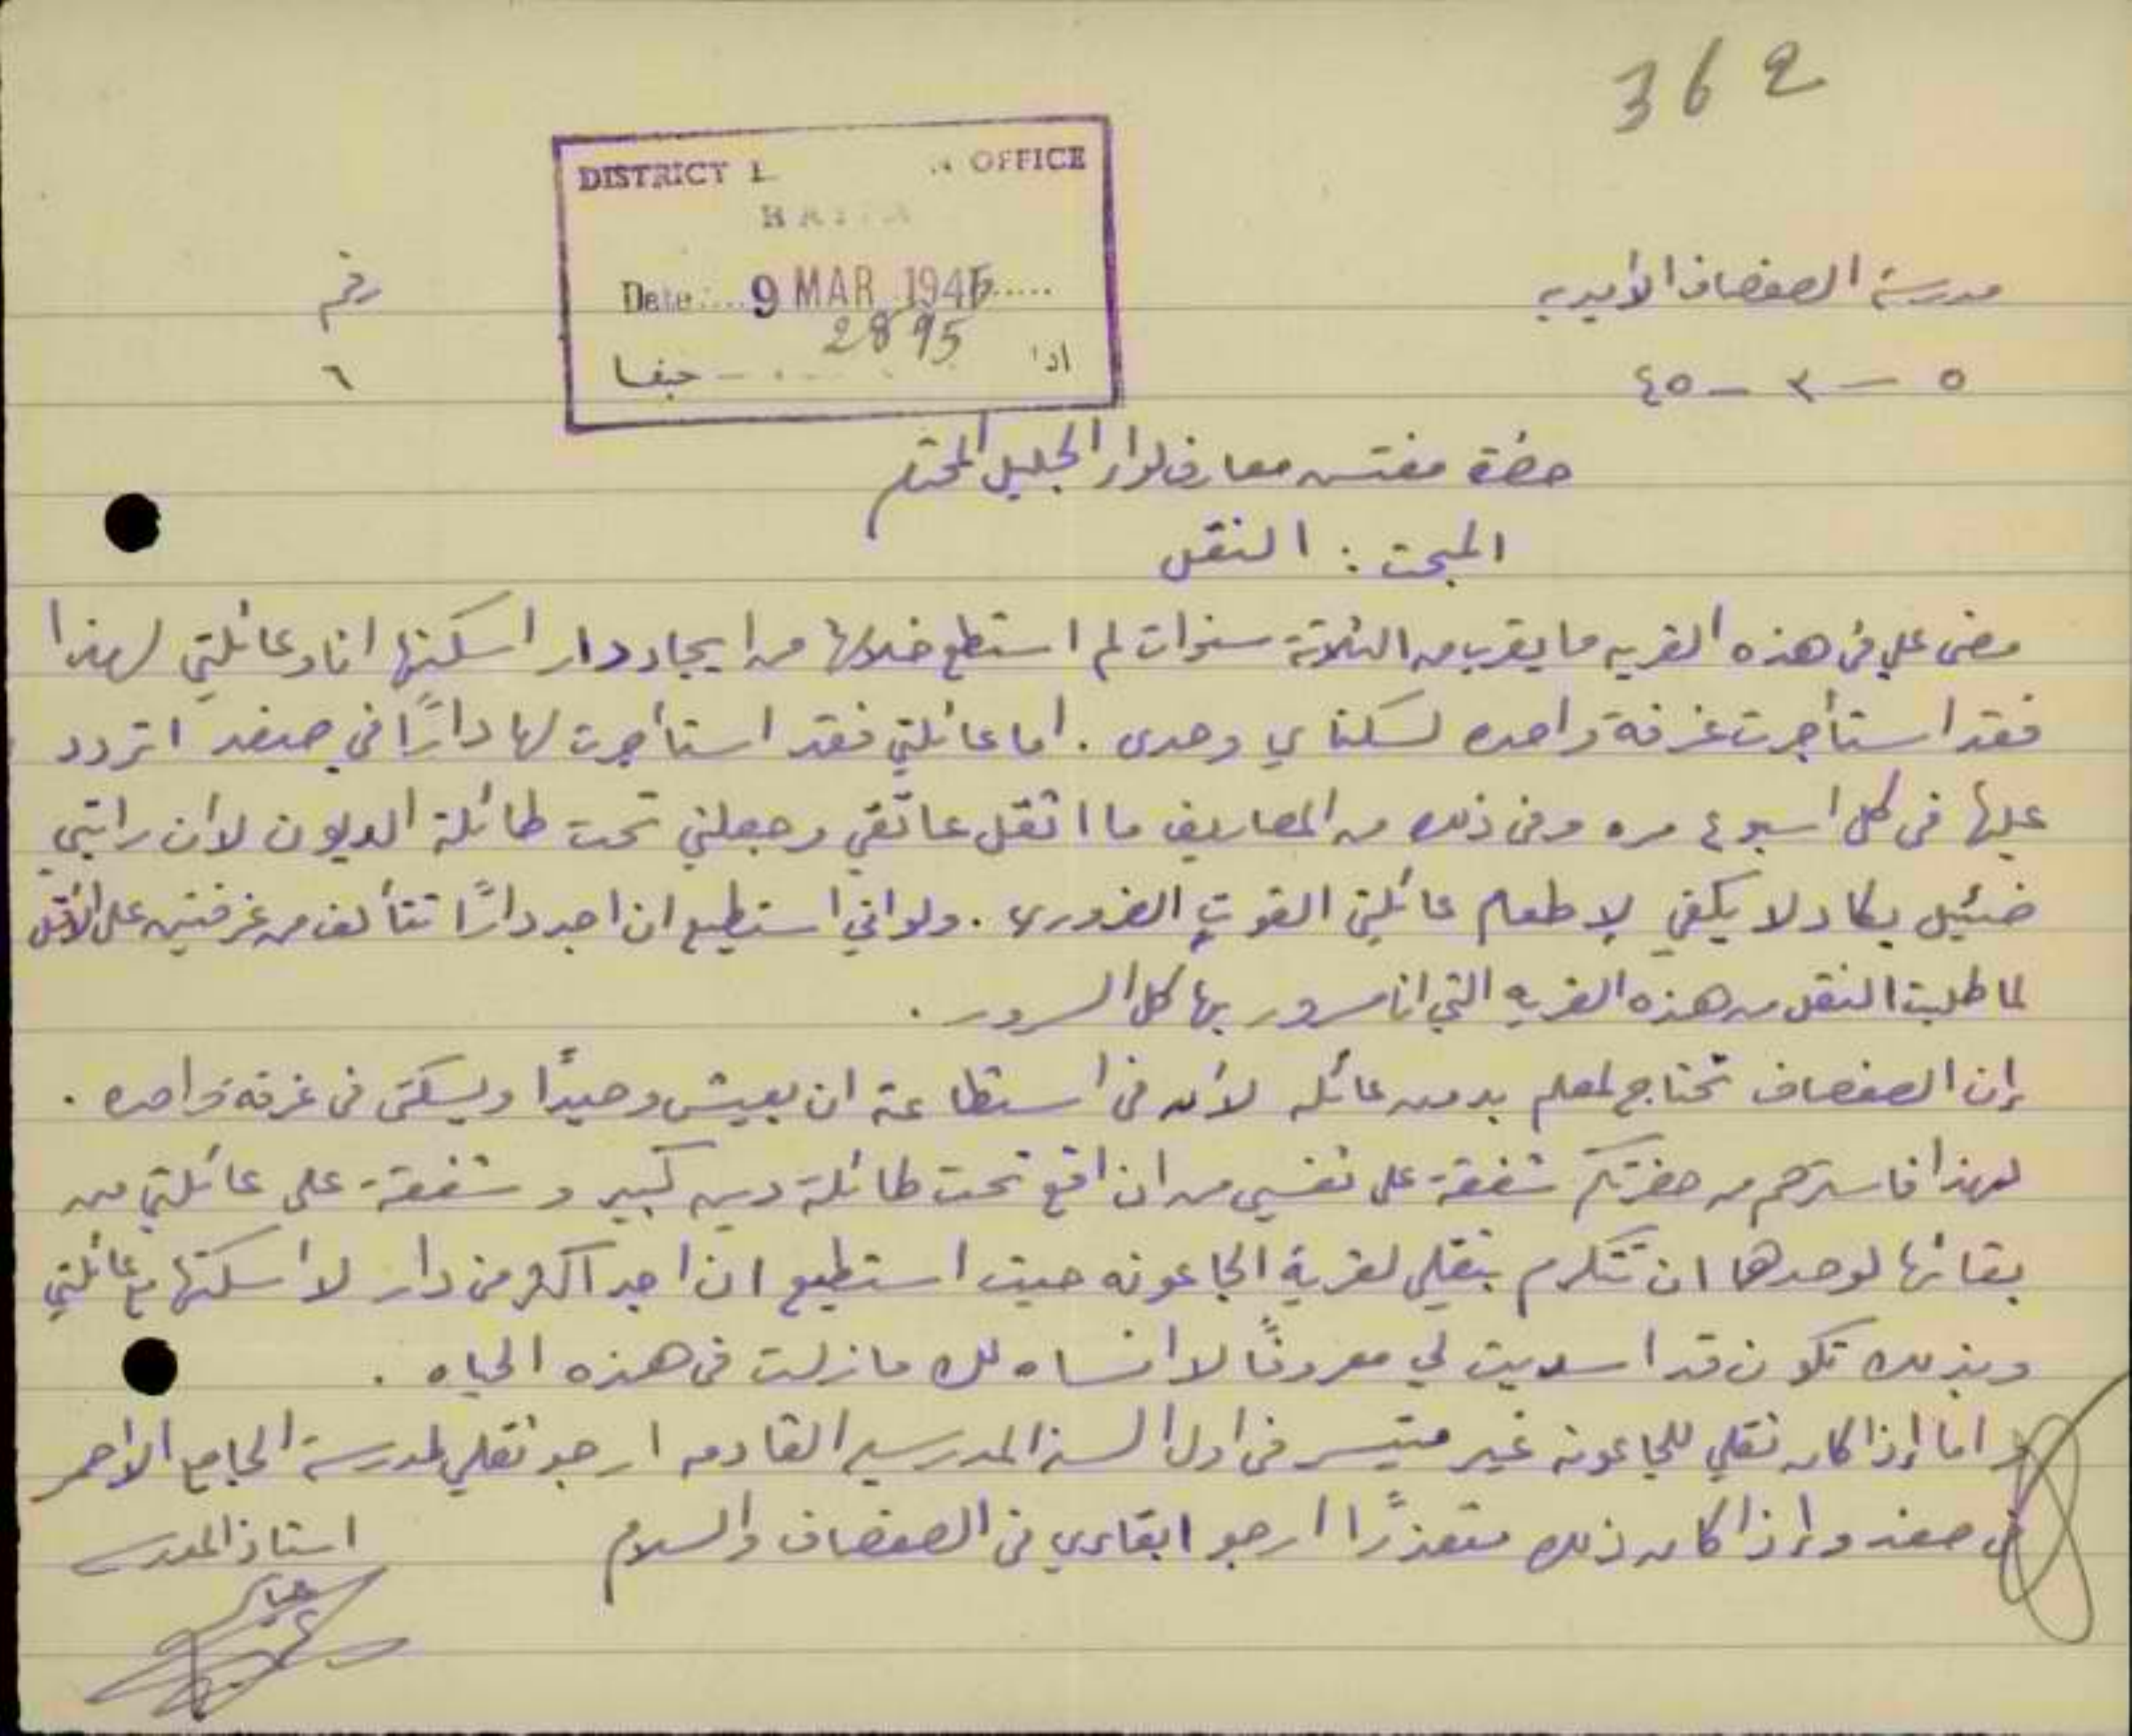 362
DISTRICT OFFICE
HAIFA
Date 9 MAR 1945
2895
حيفا
مدرسة الصفصاف الأميريه
رقم
٥ - ٣ - ٤٥
٦
حضرة مفتش معارف لواء الجليل المحترم
المبحث : النقل
مضى علي في هذه القريه ما يقرب من الثلاثة سنوات لم استطع خلالها من ايجاد دار اسكنها انا وعائلتي لهذا
فقد استأجرت غرفة واحده لسكناي وحدى . اما عائلتي فقد استأجرت لها دارًا في صفد اتردد
عليها في كل اسبوع مره وفي ذلك من المصاريف ما اثقل عاتقي وجعلني تحت طائلة الديون لأن راتبي
ضئيل يكاد لا يكفي لإطعام عائلتي القوت الضروري . ولو اني استطيع ان اجد دارًا تتألف من غرفتين على الأقل
لما طلبت النقل من هذه القريه التي انا مسرور بها كل السرور .
إن الصفصاف تحتاج لمعلم بدون عائله لأنه في استطاعة ان يعيش وحيدًا ويسكن في غرفة واحده .
لهذا فاسترحم من حضرتكم شفقة على نفسي من ان اقع تحت طائلة دين كبير وشفقة على عائلتي من
بقائها لوحدها ان تتكرم بنقلي لقرية الجاعونه حيث استطيع ان اجد اكثر من دار لأسكنها مع عائلتي
وبذلك تكون قد اسديت لي معروفًا لا انساه لك ما زلت في هذه الحياه .
واما إذا كان نقلي للجاعونه غير متيسر في اول السنة المدرسيه القادمه ارجو نقلي لمدرسة الجامع الاحمر
في صفد وإذا كان ذلك متعذرًا ارجو ابقاءي في الصفصاف والسلام
استاذ المدرسة